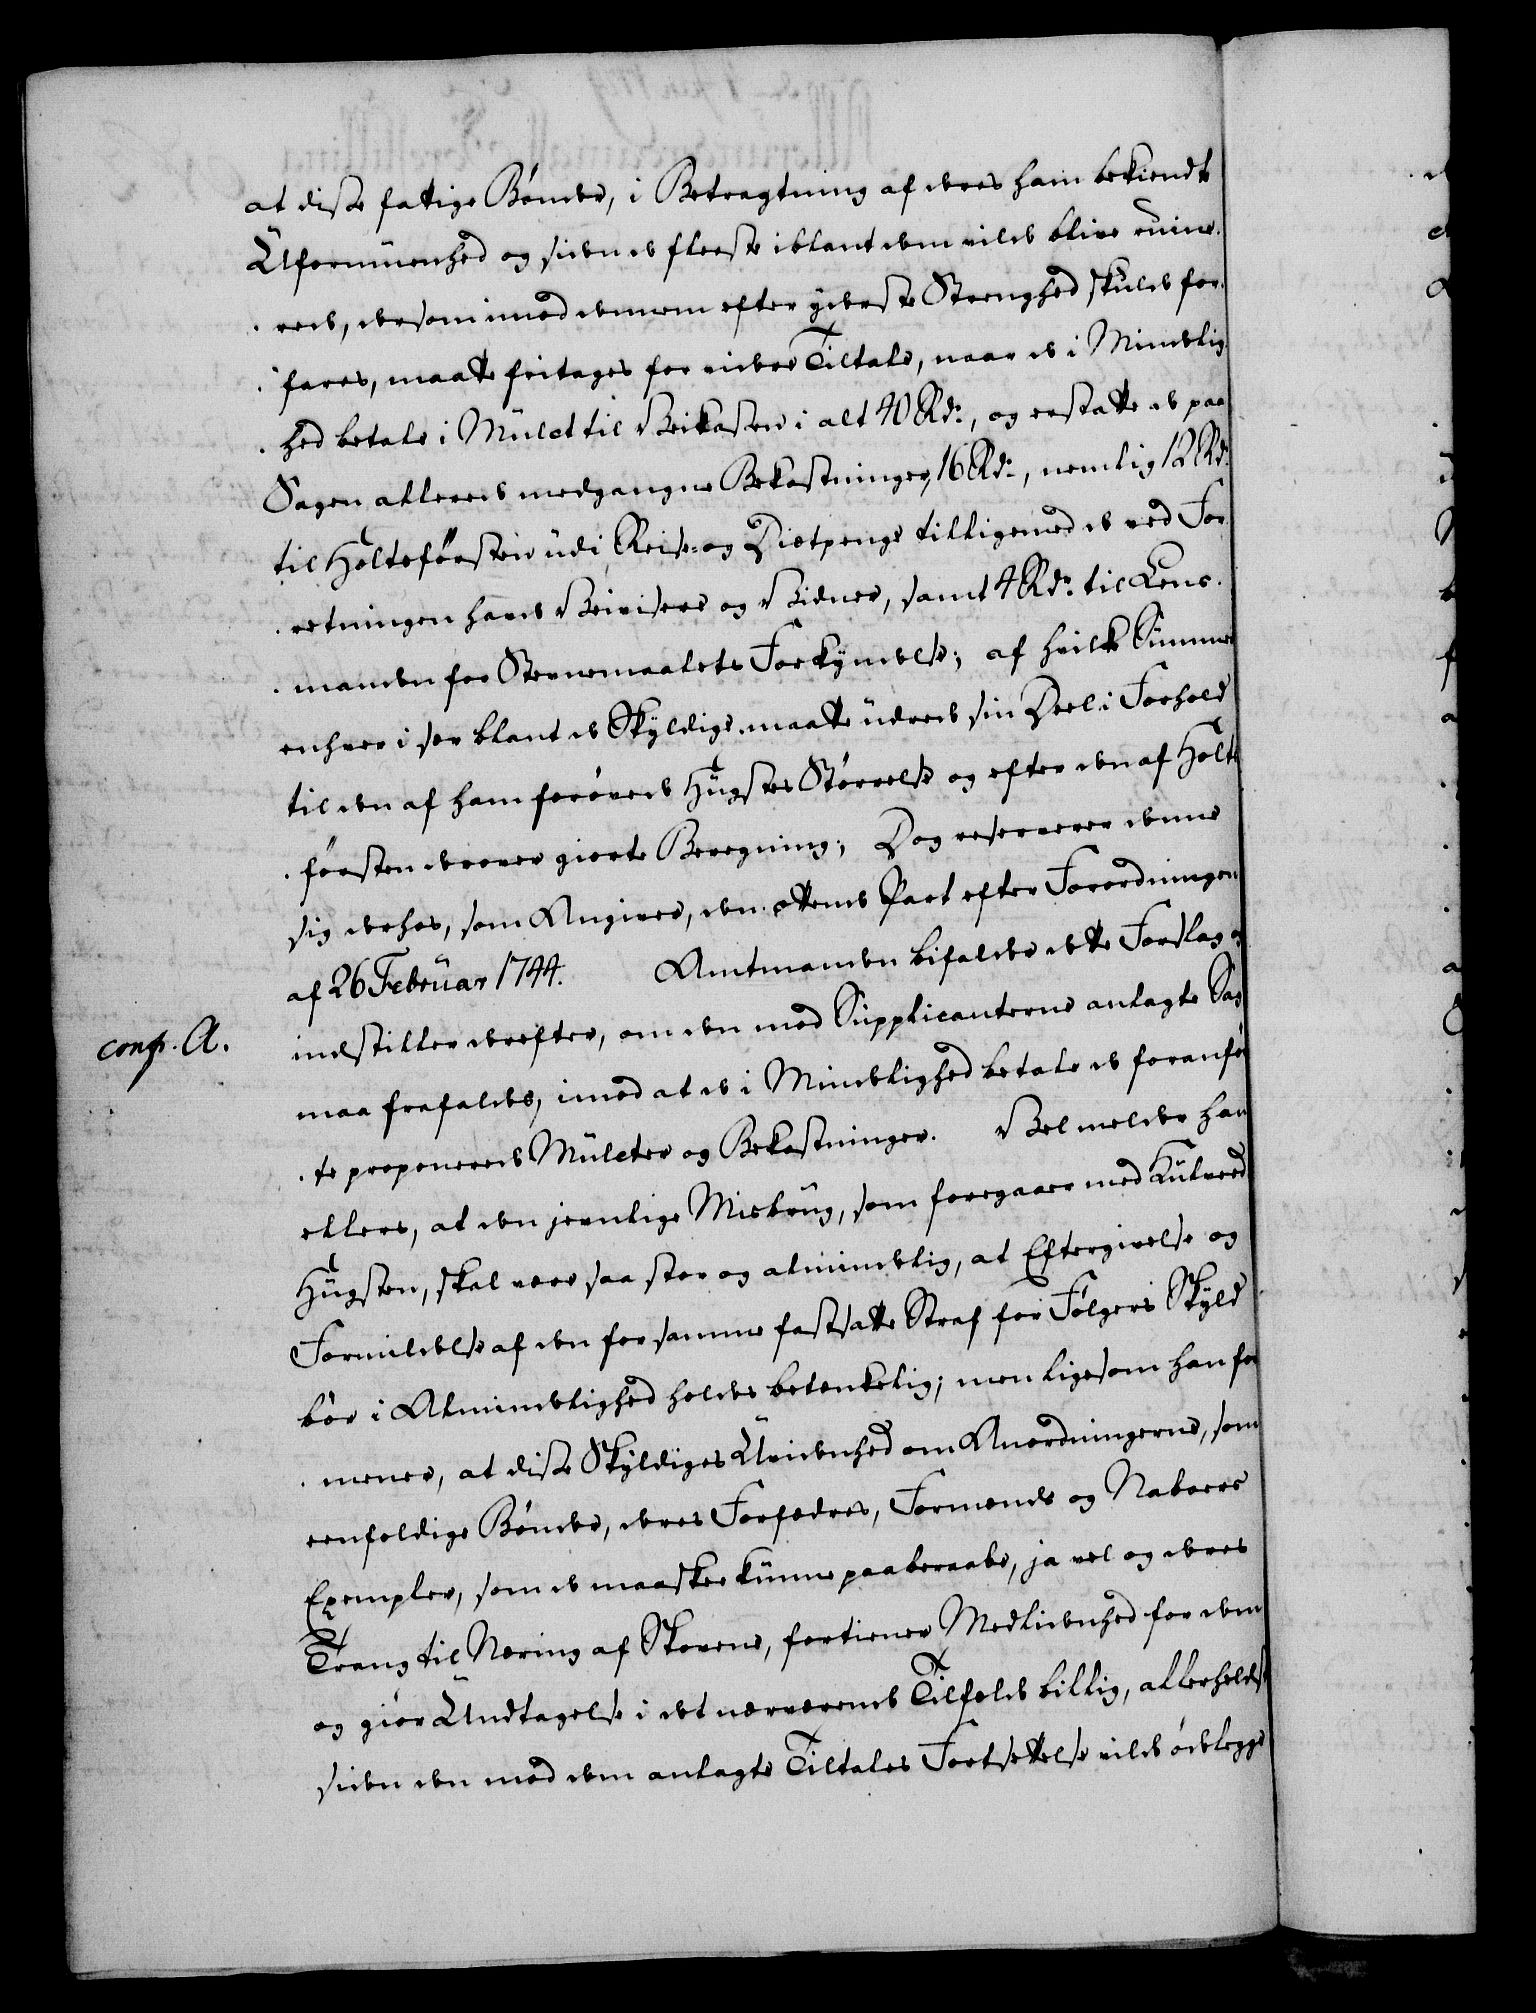 at disse fattige Bønder, i Betragtning af deres ham bekiendte
Uformuenhed og siden de fleeste iblant dem vilde blive ruine¬
rede, dersom imod dennem efter yderste Strenghed skulde for¬
fares, maatte fritages for videre Tiltale, naar de i Mindelig¬
hed betale i Mulct til Veikassen i alt 40 Rdr, og erstatte de paa
Sagen allerede medgangne Bekostninger, 16 Rdr, nemlig 12 Rdr
til Holtsførsten udi Reise- og Diætpenge tilligemed de ved For¬
retningen havde Veivisere og Vidner, samt 4 Rdr til Lens¬
manden for Stevnemaalets Forkyndelse; af hvilke Summer
enhver i sær blant de Skyldige maatte udrede sin Deel i Forhold
til den af ham forøvede Hugsts Størrelse og efter den af Holt¬
førsten derover giorte Beregning; Dog reserverer denne
sig derhos, som Angiver, den ottende Part efter Forordningen
af 26 Februar 1744. Amtmanden bifalder dette Forslag og
indstiller derefter, om den mod Supplicanterne anlagte Sag
conf. A.
maa frafaldes, imod at de i Mindelighed betale de foranfør¬
te proponerede Mulcter og Bekostninger. Vel melder han
ellers, at den jevnlige Misbrug, som foregaaer med Kulveed
Hugsten, skal være saa stor og almindelig, at Eftergivelse og
Formildelse af den for samme fastsatte Straf for Følgers Skyld
bør i Almindelighed holdes betænkelig; men ligesom han for¬
mener, at disse Skyldiges Uvidenhed om Anordningerne, som
eenfoldige Bønder, deres Forfædres, Formænds og Naboers
Exempler, som de maaskee kunne paaberaabe, ja vel og deres
Trang til Næring af Skovene, fortiener Medlidenhed for dem
og giør Undtagelse i det nærværende Tilfælde billig, allerhelst
siden den mod dem anlagte Tiltales Fortsettelse vilde ødelegge